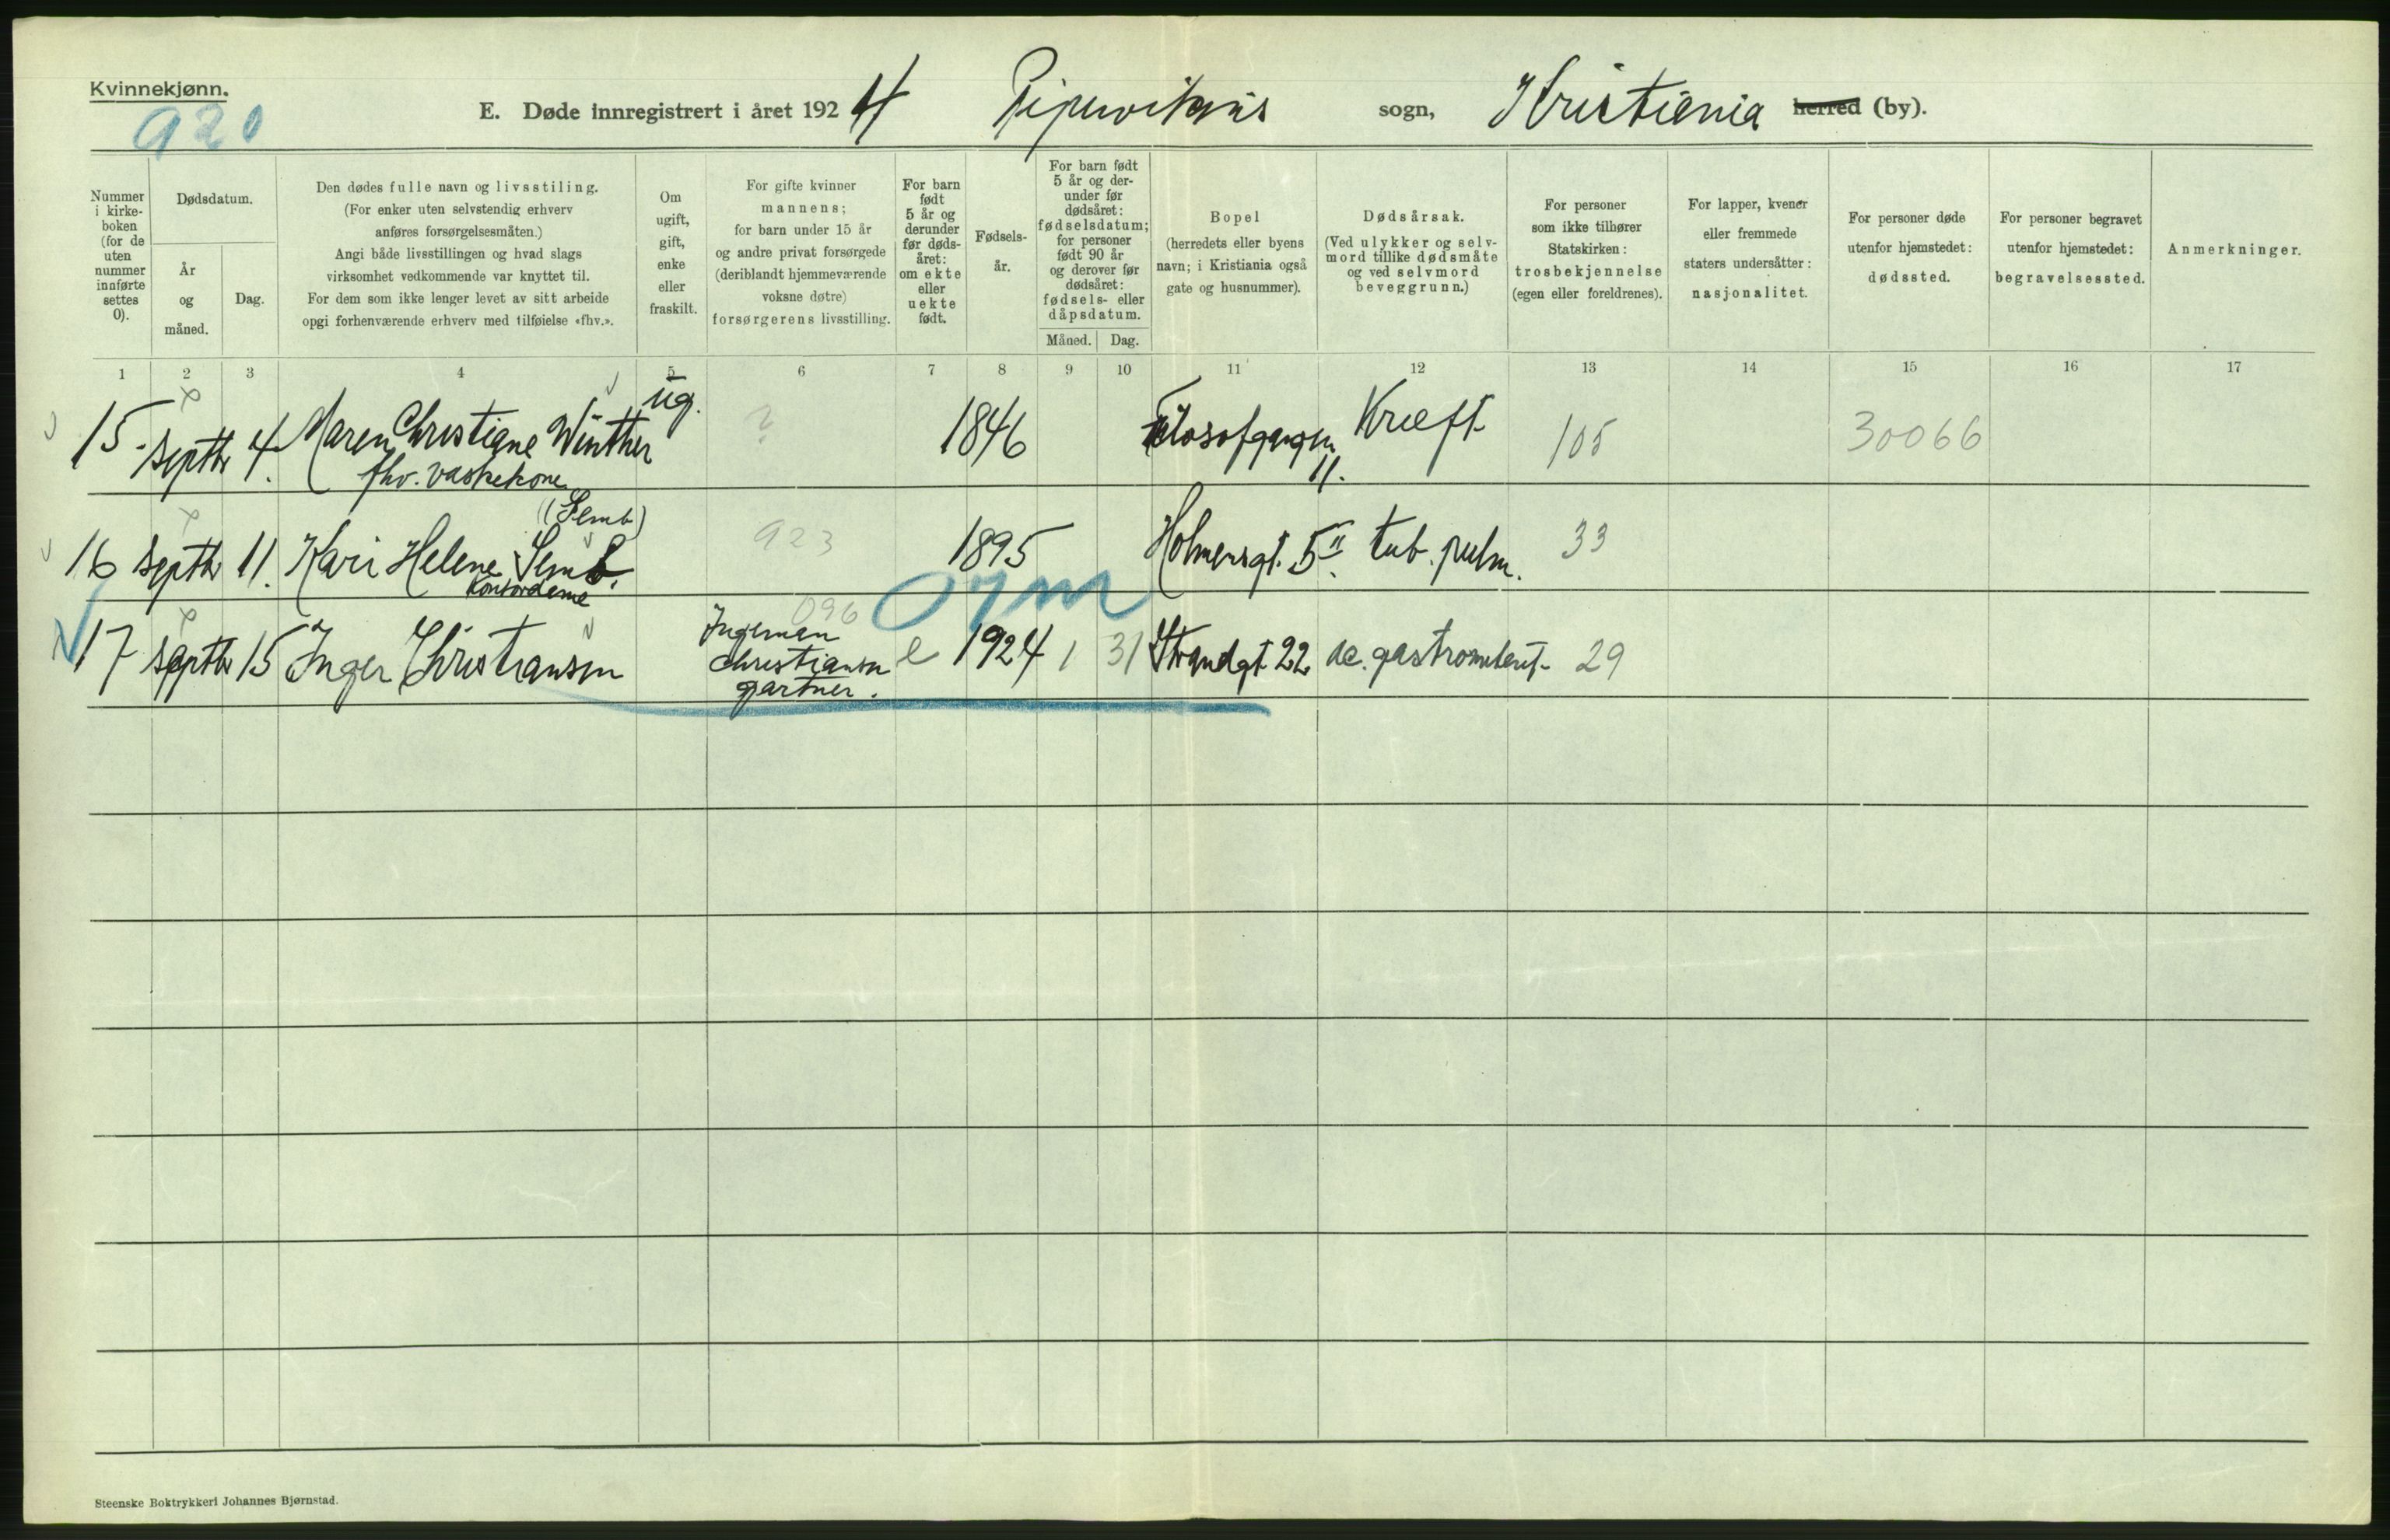 Kvinnekjønn.
920
E. Døde innregistrert i året 1924 sogn, Kristiania herred (by).
Nummer i kirke- boken (for de uten nummer innførte settes 0).
Dødsdatum.
År og måned.
Dag.
Den dødes fulle navn og livsstiling.
(For enker uten selvstendig erhverv
anføres forsørgelsesmåten.)
Angi både livsstillingen og hvad slags
virksomhet vedkommende var knyttet til.
For dem som ikke lenger levet av sitt arbeide
opgi forhenværende erhverv med tilføielse «fhv.».
Om ugift, gift, enke eller fraskilt.
For gifte kvinner
mannens;
for barn under 15 år
og andre privat forsørgede
(deriblandt hjemmeværende
voksne døtre)
forsørgerens livsstilling.
For barn født 5 år og derunder før døds- året: om ekte eller uekte født.
Fødsels- år.
For barn født 5 år og der- under før dødsåret: fødselsdatum; for personer født 90 år og derover før dødsåret: fødsels- eller dåpsdatum.
Måned. Dag.
Bopel
(herredets eller byens
navn; i Kristiania også
gate og husnummer).
Dødsårsak.
(Ved ulykker og selv-
mord tillike dødsmåte
og ved selvmord
beveggrunn.)
For personer
som ikke tilhører
Statskirken:
trosbekjennelse
(egen eller foreldrenes).
For lapper, kvener
eller fremmede
staters undersåtter:
nasjonalitet.
For personer døde
utenfor hjemstedet:
dødssted.
For personer begravet
utenfor hjemstedet:
begravelsessted.
Anmerkninger.
1 2 3 4 5 6 7 8 9 10 11 12 13 14 15 16 17
15 septbr 4. Maren Christiane Winther ug. ? 1846 Filosofgangen Kræft 105 30066
fhv. vaskekone 11.
(Semb)
16 septbr 11. Kari Helene Semb. 923 1895 Holmensgt. 5 II tub. pulm. 33
Kontordame
096
17 septbr 15 Inger Christiansen Ingeman Christiansen gartner. e 1924 1 31 Strandgt 22 ac. 29
Steenske Boktrykkeri Johannes Bjørnstad.